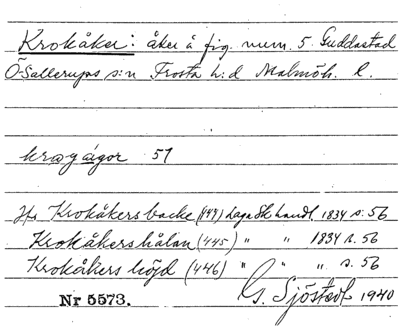 Krokåker: åker å fig. num. 5. Guddastad
Ö. Sallerups s:n Frosta h:d Malmöh. l.
krogågor 51
Jfr Krokåkersbacke (444) Laga Sk. handl. 1834 s. 56
Krokåkershålan (445) " " 1834 s. 56
Krokåkers höjd (446) " " " s. 56
Nr 5573. G. Sjöstedt 1940